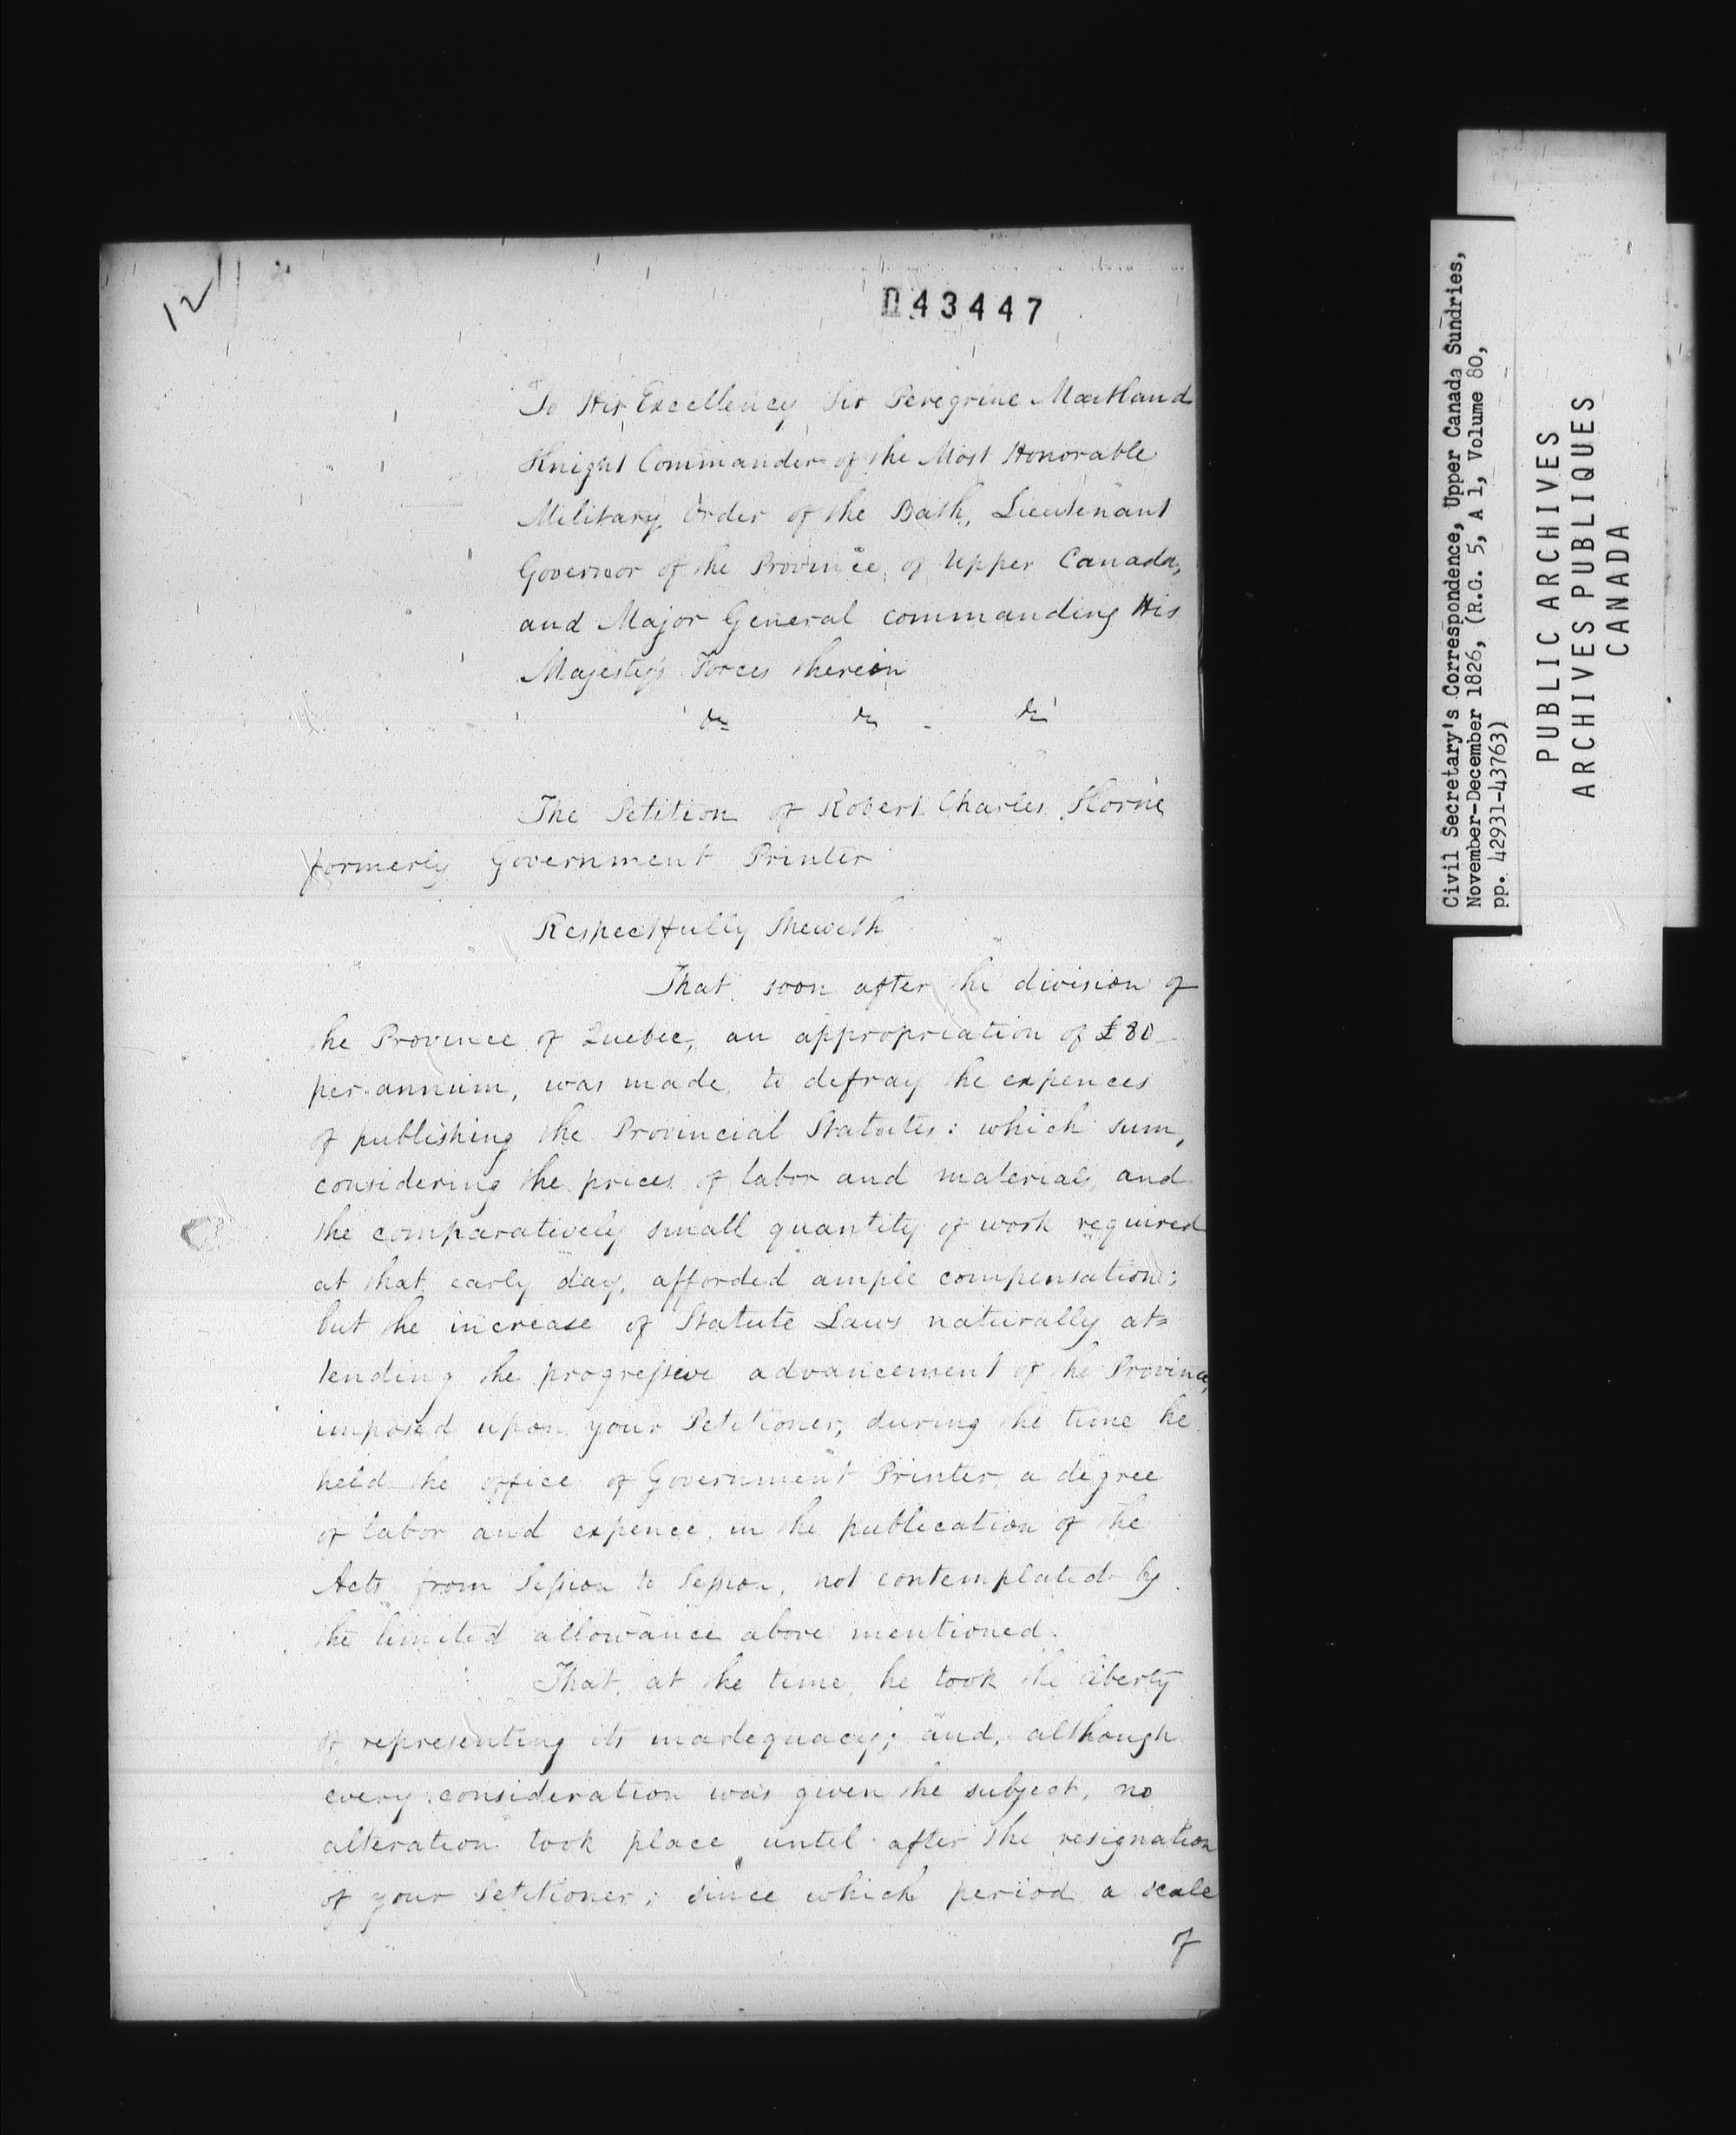 12
D43447
To His Excellency Sir Peregrine Maitland
Knight Commander of the Most Honorable
Military Order of the Bath, Lieutenant
Governor of the Province of Upper Canada,
and Major General commanding His
Majesty's Forces therein
&c &c &c
The Petition of Robert Charles Horne
formerly Government Printer
Respectfully Sheweth
That soon after the division of
the Province of Quebec, an appropriation of £80
per annum, was made, to defray the expences
of publishing the Provincial Statutes: which sum,
considering the prices of labor and materials, and
the comparatively small quantity of work required
at that early day, afforded ample compensation:
but the increase of Statute Laws naturally at=
tending the progressive advancement of the Province,
imposed upon your Petitioner, during the time he
held the office of Government Printer, a degree
of labor and expence, in the publication of the
Acts from Session to Session, not contemplated by
the limited allowance above mentioned.
That, at the time, he took the liberty
of representing its inadequacy; and, although
every consideration was given the subject, no
alteration took place until after the resignation
of your Petitioner; since which period a scale
of
Civil Secretary's Correspondence, Upper Canada Sundries,
November-December 1826, (R.G. 5, A 1, Volume 80,
pp. 42931-43763)
PUBLIC ARCHIVES
ARCHIVES PUBLIQUES
CANADA